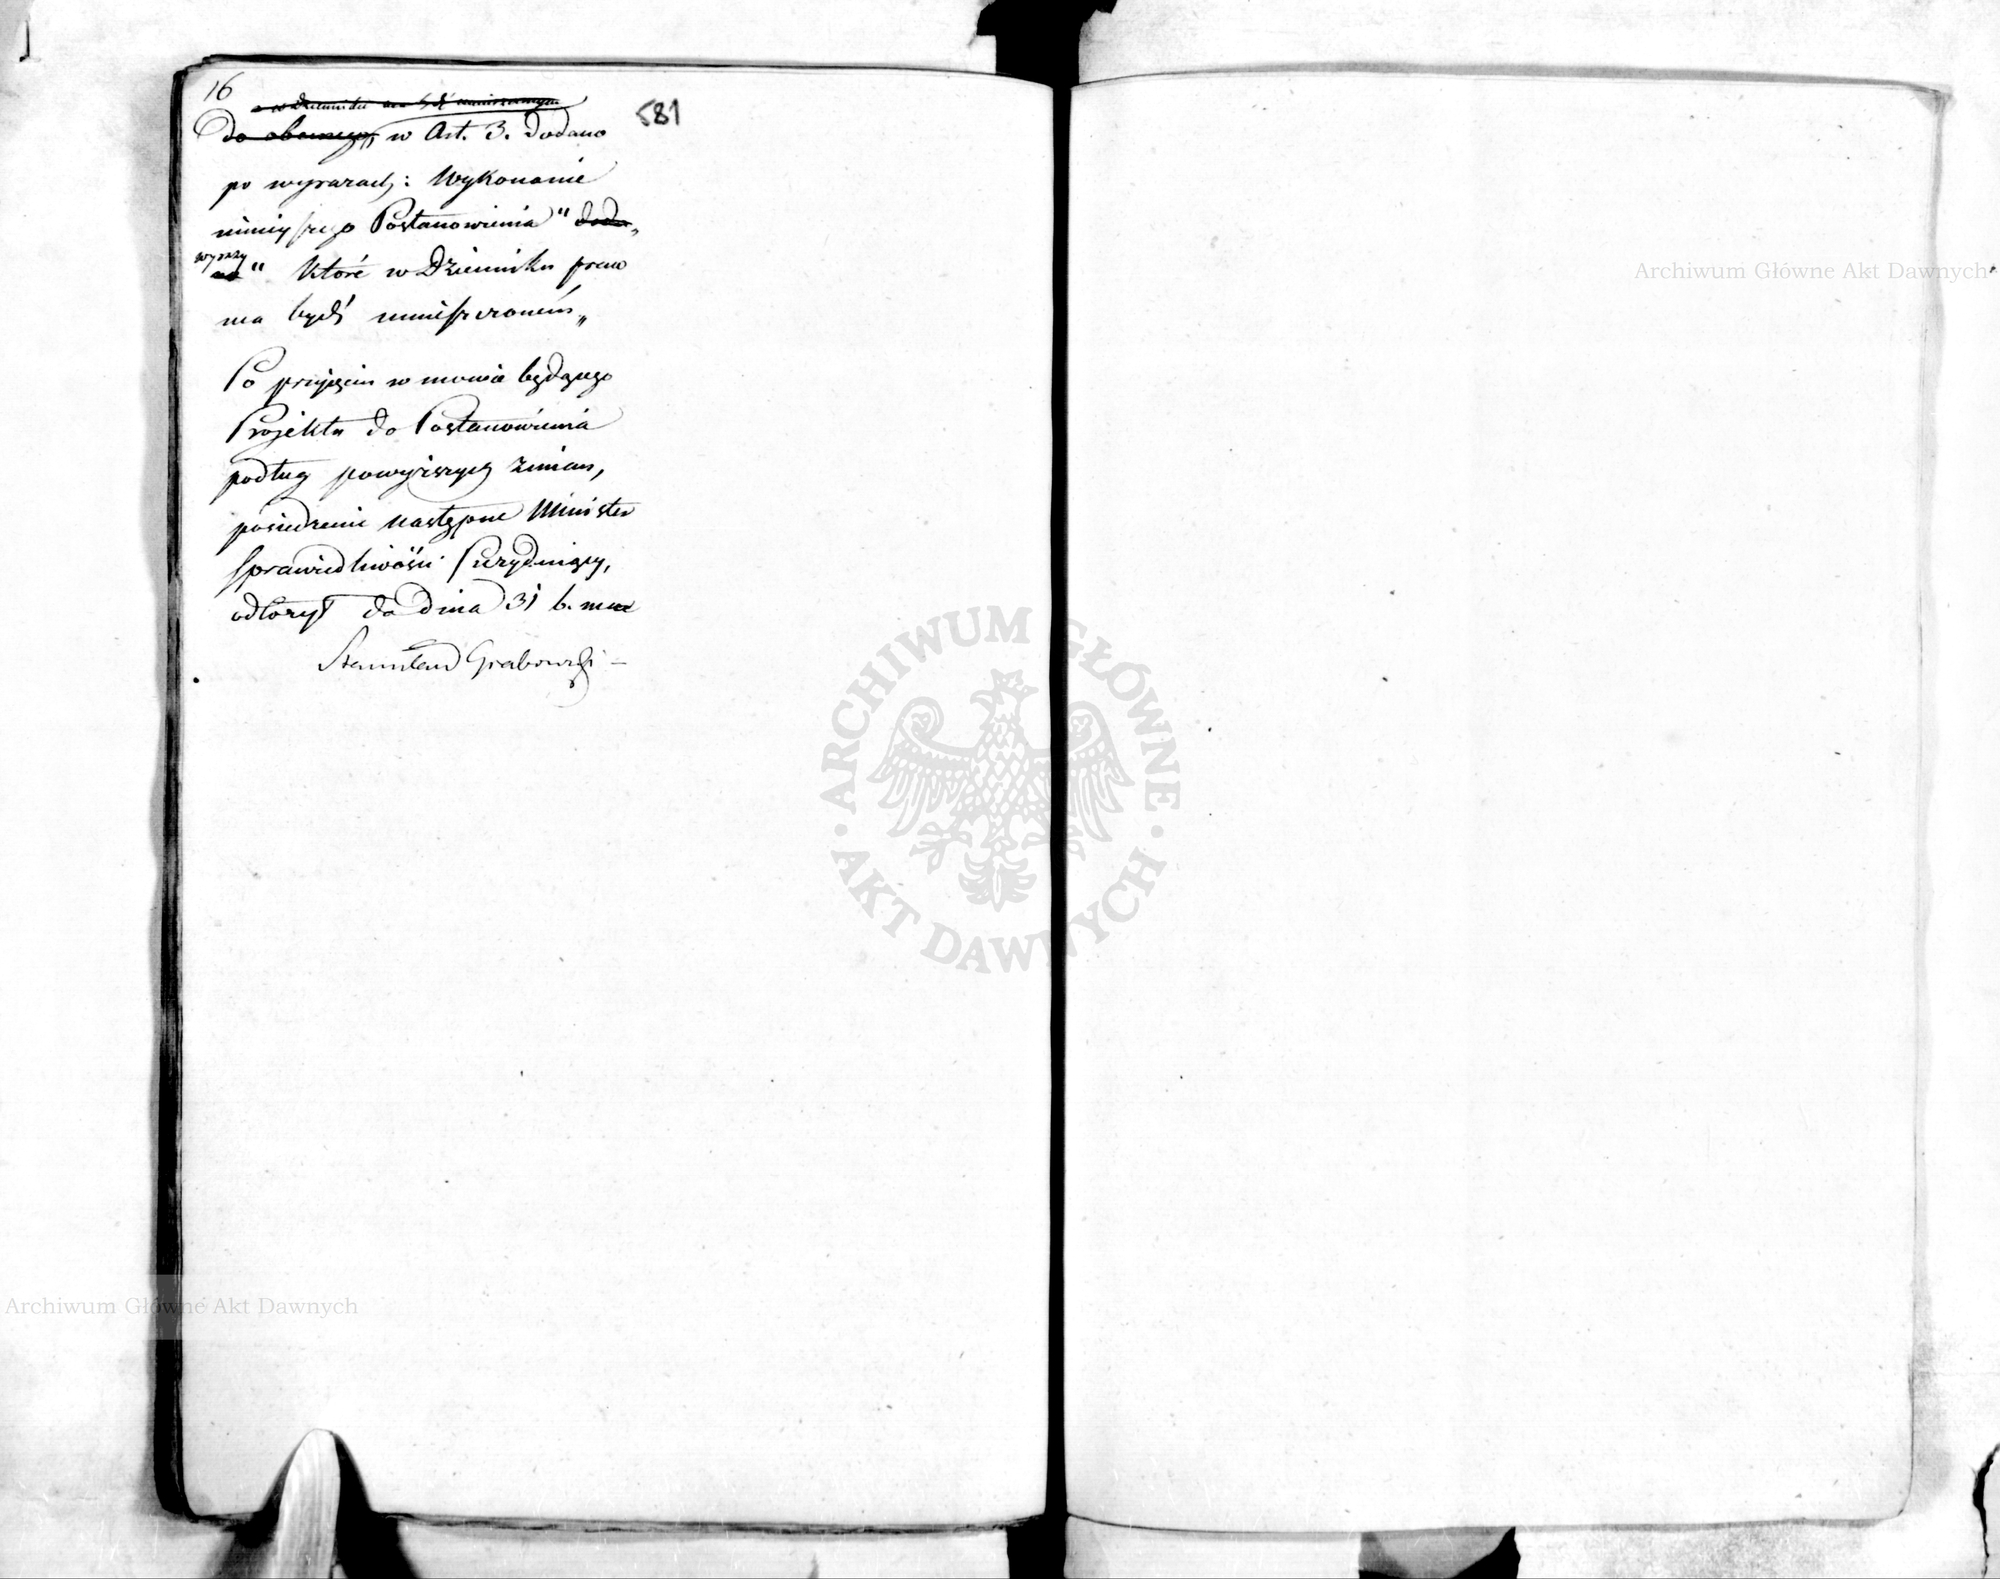 16
581
w Art. 3. dodano
po wyrazach: Wykonanie
ninieyszego Postanowienia"
wyrazy
" które w Dzienniku praw
ma bydź umieszczoném„
Po przyjęciu w mowie będącego
Projektu do Postanowienia
podług powyższych zmian,
posiedzenie następne Minister
Sprawiedliwości Prezyduiący,
odłożył do dnia 31 b. m
Stanisław Grabowski –
Archiwum Główne Akt Dawnych
ARCHIWUM GŁÓWNE
AKT DAWNYCH
Archiwum Główne Akt Dawnych